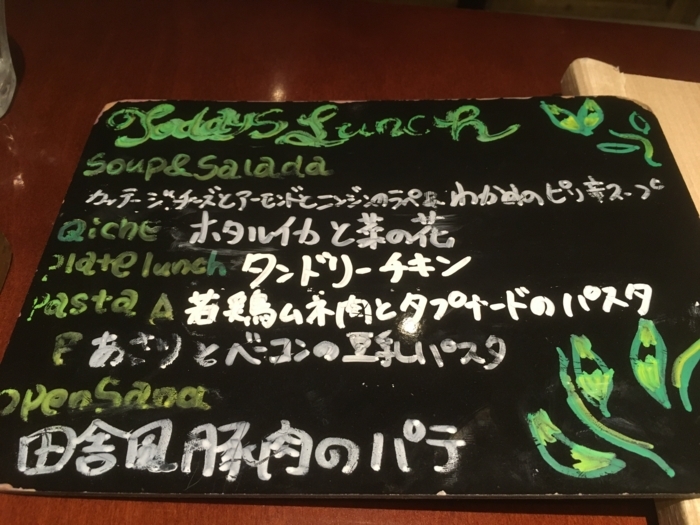 Todays Lunch
Soup&Salada
カッテージチーズとアーモンドとニンジンのラペ& わかめのピリ辛スープ
Qiche ホタルイカと菜の花
Plate lunch タンドリーチキン
Pasta A 若鶏ムネ肉とタプナードのパスタ
B あさりとベーコンの豆乳パスタ
OpenSana
田舎風豚肉のパテ